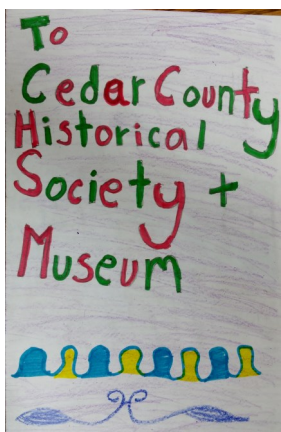 To
Cedar County
Historical
Society +
Museum